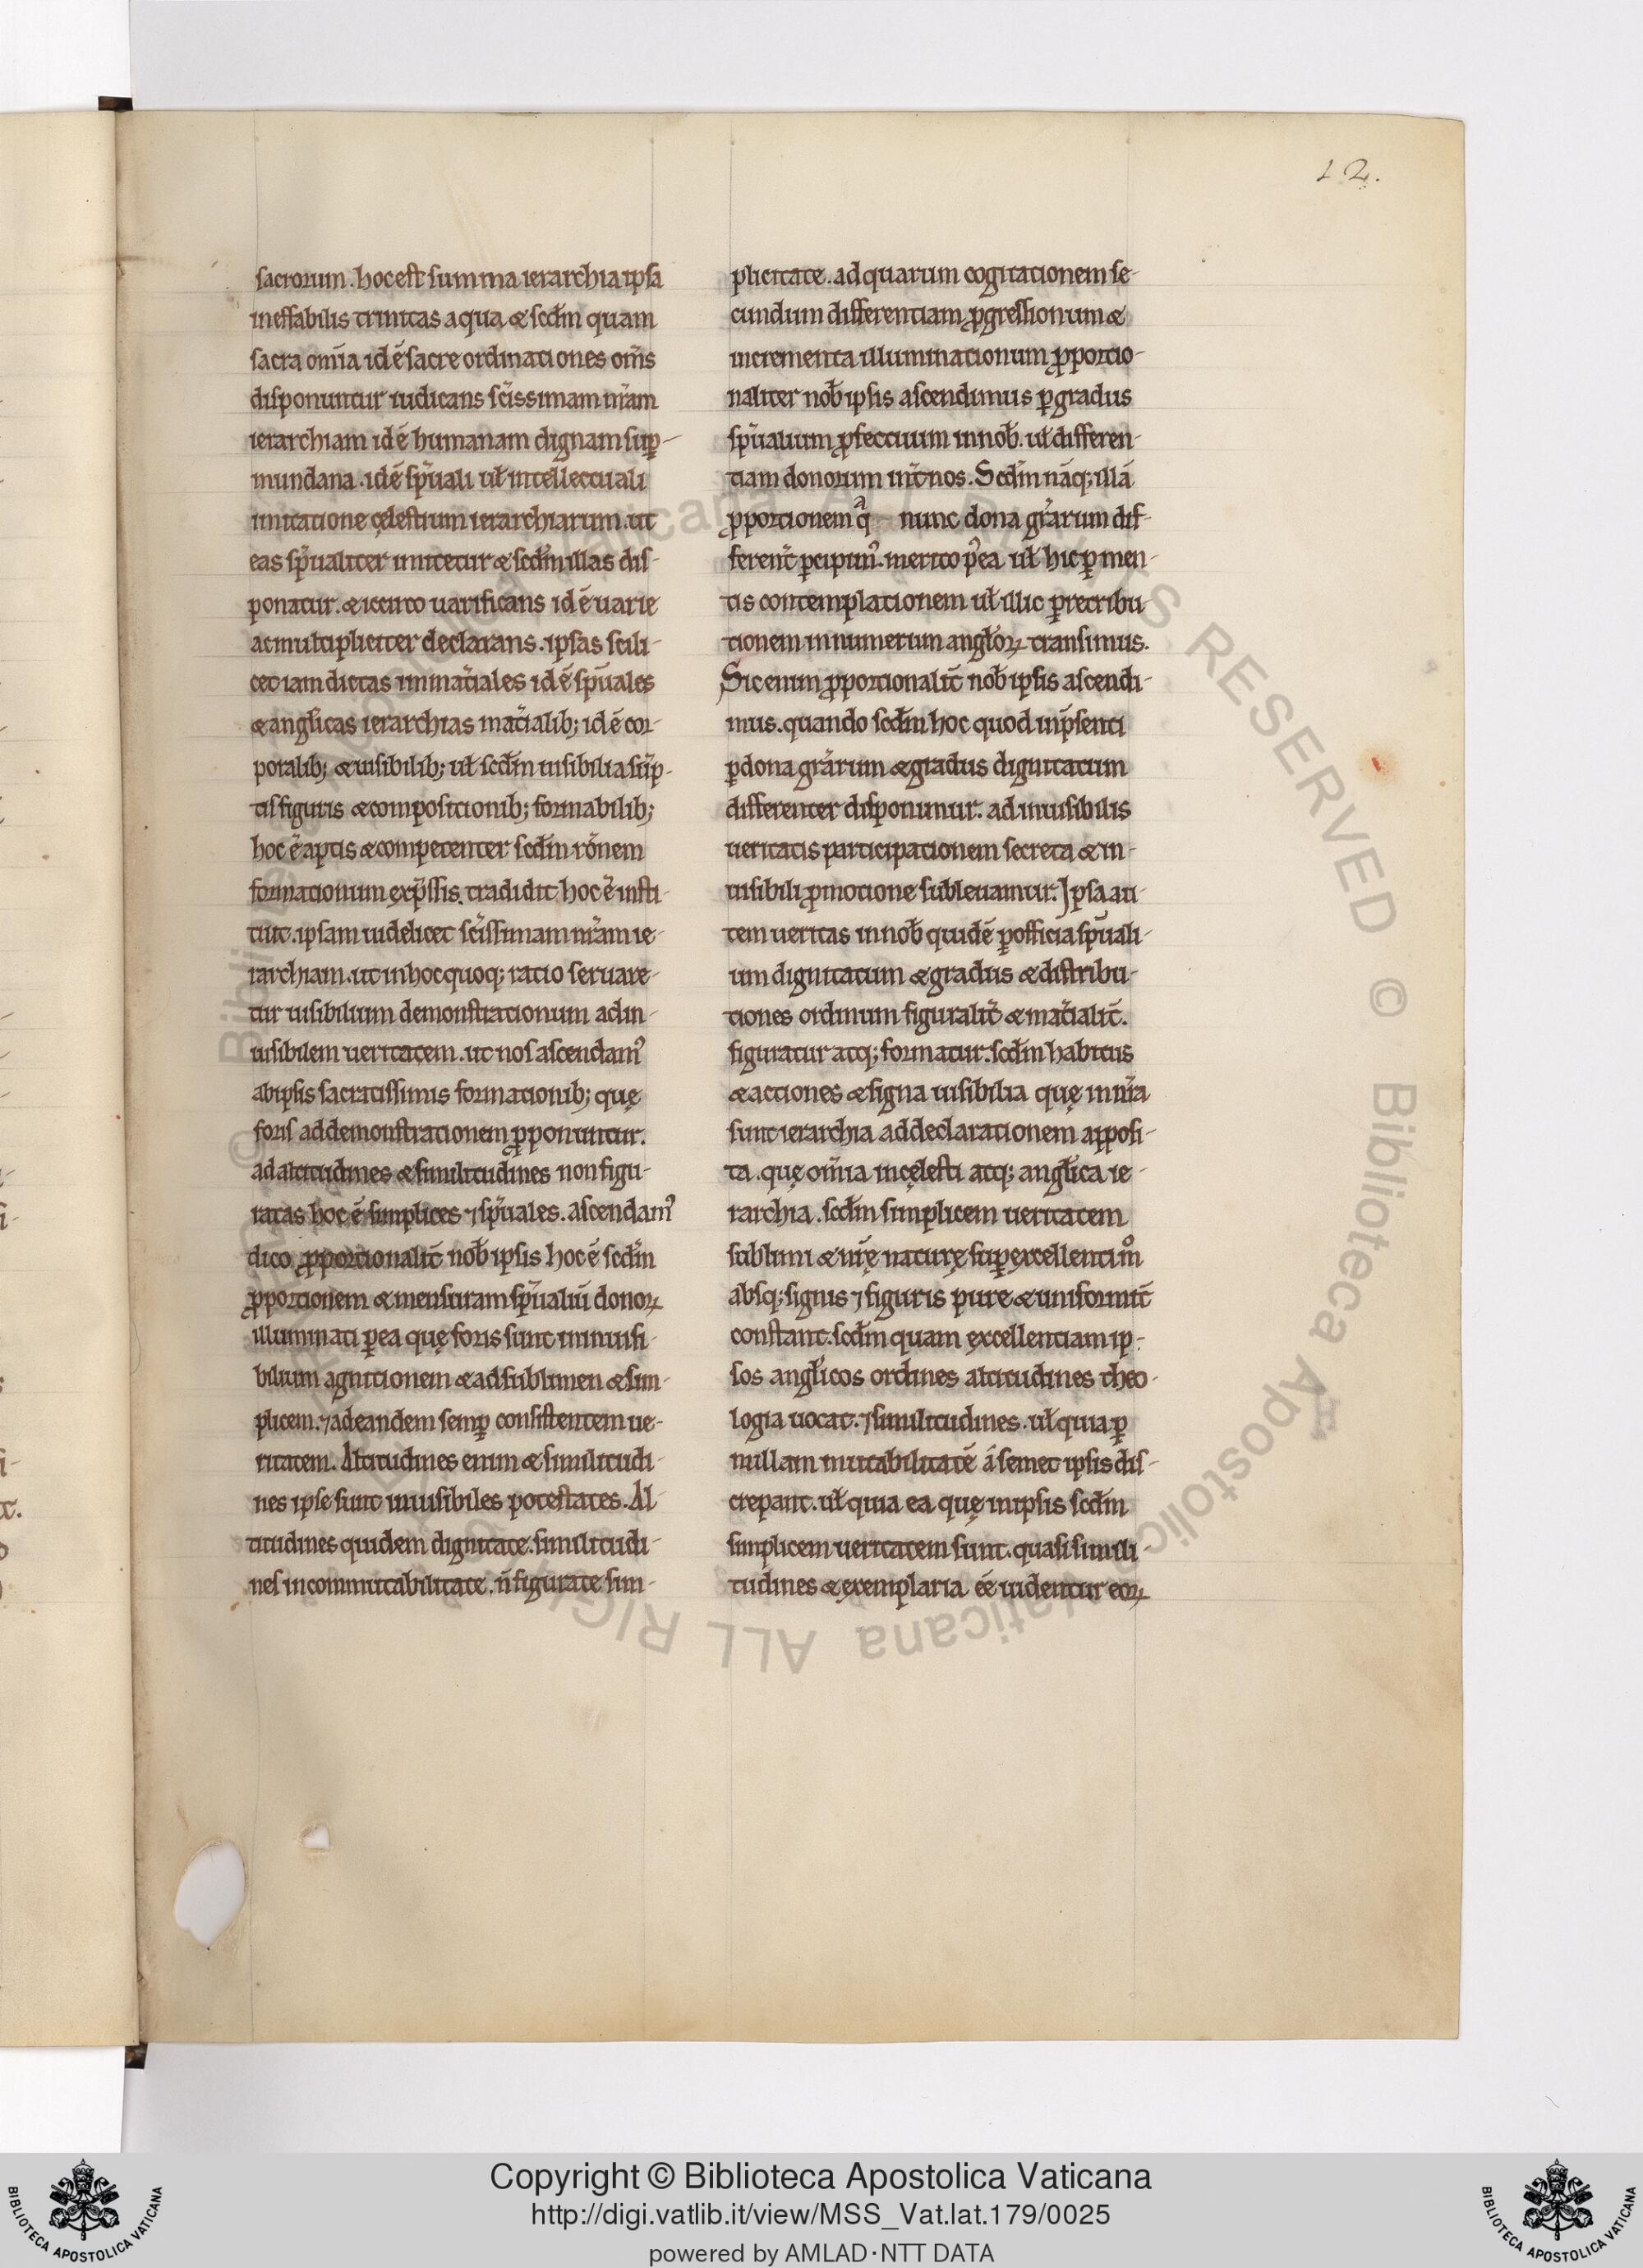 12.
sacrorum. hoc est summa ierarchia ipsa
ineffabilis trinitas a qua & scđm quam
sacra om̅ia id ē sacre ordinationes om̅s
disponuntur iudicans sc̅issimam nr̅am
ierarchiam id ē humanam dignam suꝑ-
mundana. id ē sp̅uali uł intellectuali
imitatione cęlestium ierarchiarum. ut
eas sp̅ualiter imitetur & scđm illas dis-
ponatur. & iccirco uarificans id ē uarie
ac multipliciter declarans. ipsas scili-
cet iam dictas inmat̅iales id ē sp̅uales
& angłicas ierarchias mat̅ialib; id ē cor-
poralib; & uisibilib; uł scđm uisibilia sūp-
tis figuris & compositionib; formabilib;
hoc ē aptis & competenter scđm rōnem
formationum exp̅ssis. tradidit hoc ē insti-
tuit. ipsam uidelicet sc̅issimam nr̅am ie-
rarchiam. ut in hoc quoq; ratio seruare-
tur uisibilium demonstrationum ad in-
uisibilem ueritatem. ut nos ascendam᾿
ab ipsis sacratissimis formationib; quę
foris ad demonstrationem ꝓponuntur.
ad altitudines & similitudines non figu-
ratas hoc ē simplices ⁊ sp̅uales. ascendam᾿
dico ꝓportionalit̅ nob̅ ipsis hoc ē scđm
ꝓportionem & mensuram sp̅ualiū donoꝝ
illuminati ꝑ ea quę foris sunt in inuisi-
bilium agnitionem & ad sublimen & sim-
plicem. ⁊ ad eandem semꝑ consistentem ue-
ritatem. Altitudines enim & similitudi-
nes ipse sunt inuisibiles potestates. Al-
titudines quidem dignitate. similitudi-
nes incommutabilitate. n̅ figurate sim-
plicitate. ad quarum cogitationem se-
cundum differentiam ꝓgressionum &
incrementa illuminationum ꝓportio-
naliter nob̅ ipsis ascendimus ꝑ gradus
sp̅ualium ꝓfectuum in nob̅. uł differen-
tiam donorum int̅ nos. Scđm nāq; illā
ꝓportionem qͣ nunc dona gr̅arum dif-
ferent̅ ꝑcipim᾿. merito p᾿ea uł hic ꝑ men-
tis contemplationem uł illic ꝑ retribu-
tionem in numerum angłoꝝ transimus.
Sic enim ꝓportionalit̅ nob̅ ipsis ascendi-
mus. quando scđm hoc quod in p̅senti
ꝑ dona gr̅arum & gradus dignitatum
differenter disponimur. ad inuisibilis
ueritatis participationem secreta & in-
uisibili ꝓmotione subleuamur. Ipsa au-
tem ueritas in nob̅ quidē ꝑ officia sp̅uali-
um dignitatum & gradus & distribu-
tiones ordinum figuralit̅ & mat̅ialit̅.
figuratur atq; formatur. scđm habitus
& actiones & signa uisibilia quę in nr̅a
sunt ierarchia ad declarationem apposi-
ta. quę om̅ia in cęlesti atq; angłica ie-
rarchia. scđm simplicem ueritatem
sublimi & nr̅ę naturę suꝑexcellenti mͦ
absq; signis ⁊ figuris pure & uniformit̅
constant. scđm quam excellentiam ip-
sos angłicos ordines altitudines theo-
logia uocat. ⁊ similitudines. uł quia ꝑ
nullam mutabilitatē a semet ipsis dis-
crepant. uł quia ea quę in ipsis scđm
simplicem ueritatem sunt. quasi simili-
tudines & exemplaria ēē uidentur eoꝝ
© Biblioteca Apostolica Vaticana ALL RIGHTS RESERVED
Copyright © Biblioteca Apostolica Vaticana
http://digi.vatlib.it/view/MSS_Vat.lat.179/0025
powered by AMLAD·NTT DATA
BIBLIOTECA APOSTOLICA VATICANA
BIBLIOTECA APOSTOLICA VATICANA